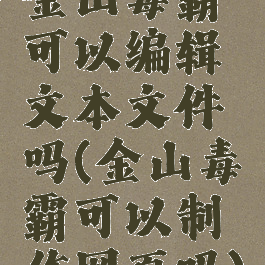 金山毒霸
可以编辑
文本文件
吗(金山毒
霸可以制
作网页吗)